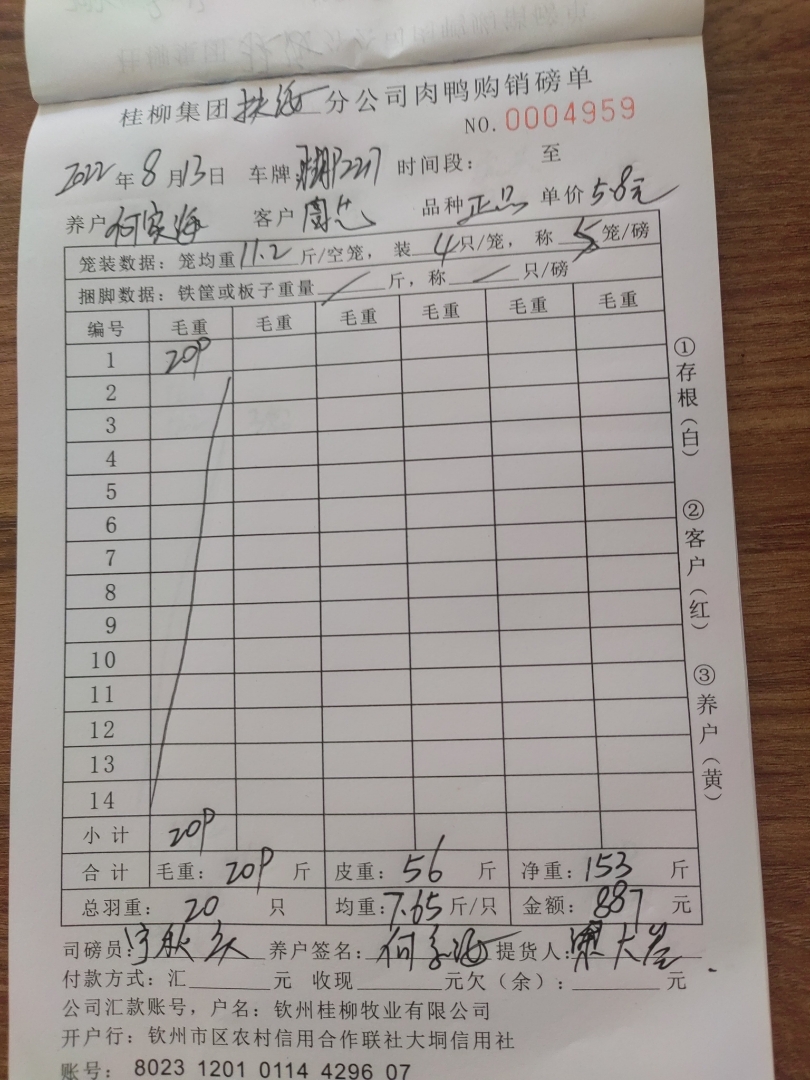 桂柳集团 分公司肉鸭购销磅单
NO.0004959
2022年8月13日 车牌 2217 时间段： 至
养户何家海 客户周芯 品种正品 单价5.8元
笼装数据：笼均重11.2斤/空笼，装4只/笼，称5笼/磅
捆脚数据：铁筐或板子重量/斤，称/只/磅
编号 毛重 毛重 毛重 毛重 毛重 毛重
1 209
2
3
4
5
6
7
8
9
10
11
12
13
14
小计 209
合计 毛重：209斤 皮重：56斤 净重：153斤
总羽重：20只 均重：7.65斤/只 金额：887元
司磅员： 养户签名：何家海 提货人：
付款方式：汇____元 收现____元欠（余）：____元
公司汇款账号，户名：钦州桂柳牧业有限公司
开户行：钦州市区农村信用合作联社大垌信用社
账号：8023 1201 0114 4296 07
①存根（白）
②客户（红）
③养户（黄）